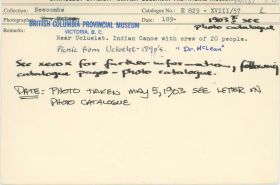 Collector: Newcombe Catalogue No. E 829 - XVIII/57 L
Date: 189- 1903? see photo catalogue
BRITISH COLUMBIA PROVINCIAL MUSEUM
VICTORIA, B. C.
Near Ucluelet. Indian Canoe with crew of 20 people.
Picnic from Ucluelet - 1890's. "Dr. McLean"
See xerox for further information, following
catalogue pages - photo catalogue.
DATE: PHOTO TAKEN MAY 5, 1903 SEE LETTER IN
PHOTO CATALOGUE